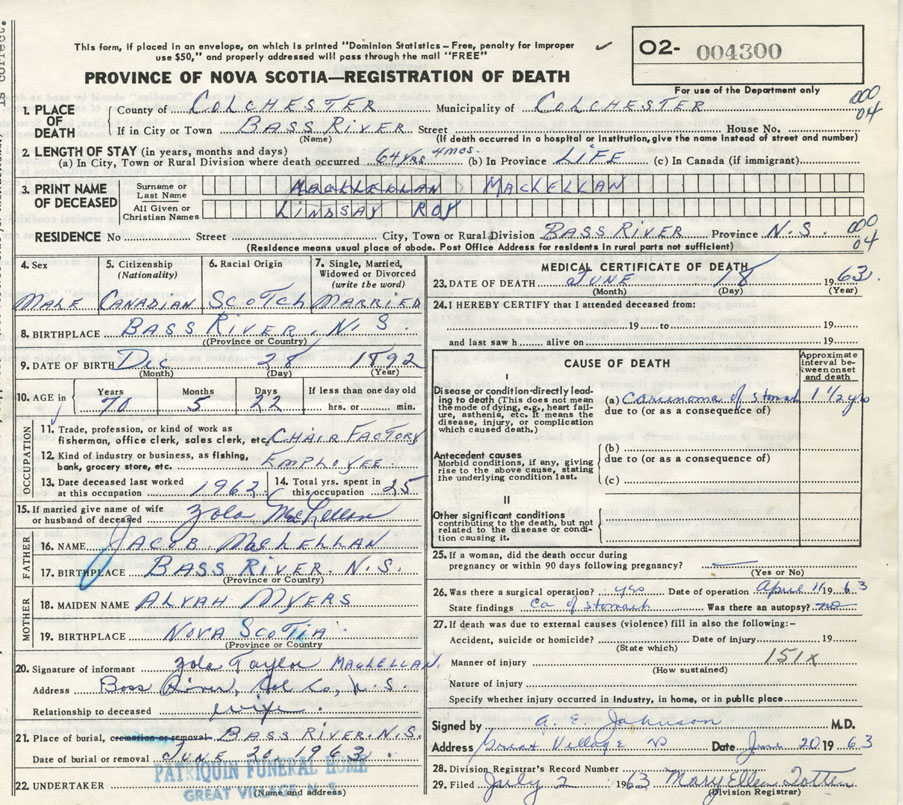 is correct.
This form, if placed in an envelope, on which is printed "Dominion Statistics – Free, penalty for improper
use $50," and properly addressed will pass through the mail "FREE"
O2- 004300
PROVINCE OF NOVA SCOTIA—REGISTRATION OF DEATH
For use of the Department only
1. PLACE OF DEATH
County of COLCHESTER Municipality of COLCHESTER 000 04
If in City or Town BASS RIVER Street House No.
(Name) (If death occurred in a hospital or institution, give the name instead of street and number)
2. LENGTH OF STAY (in years, months and days)
(a) In City, Town or Rural Division where death occurred 64 yrs 4 mos. (b) In Province LIFE (c) In Canada (if immigrant)
3. PRINT NAME OF DECEASED
Surname or Last Name MACLELLAN MACLELLAN
All Given or Christian Names LINDSAY ROY
RESIDENCE No Street City, Town or Rural Division BASS RIVER Province N.S. 000 04
(Residence means usual place of abode. Post Office Address for residents in rural parts not sufficient)
4. Sex 5. Citizenship (Nationality) 6. Racial Origin 7. Single, Married, Widowed or Divorced (write the word)
MALE CANADIAN SCOTCH MARRIED
8. BIRTHPLACE BASS RIVER, N.S.
(Province or Country)
9. DATE OF BIRTH Dec 28 1892
(Month) (Day) (Year)
10. AGE in Years Months Days If less than one day old
70 5 22 hrs. or min.
OCCUPATION
11. Trade, profession, or kind of work as
fisherman, office clerk, sales clerk, etc. CHAIR FACTORY
12. Kind of industry or business, as fishing,
bank, grocery store, etc. EMPLOYEE
13. Date deceased last worked at this occupation 1962 14. Total yrs. spent in this occupation 25
15. If married give name of wife
or husband of deceased Zola MacLellan
FATHER
16. NAME JACOB MACLELLAN
17. BIRTHPLACE BASS RIVER. N.S.
(Province or Country)
MOTHER
18. MAIDEN NAME ALYAH MYERS
19. BIRTHPLACE NOVA SCOTIA
(Province or Country
20. Signature of informant Zola Taylor MACLELLAN.
Address Bass River, Col Co, N.S.
Relationship to deceased wife.
21. Place of burial, cremation or removal BASS RIVER. N.S.
Date of burial or removal JUNE 20, 1963
22. UNDERTAKER PATRIQUIN FUNERAL HOME
(Name and address)
GREAT VILLAGE, N.S.
MEDICAL CERTIFICATE OF DEATH
23. DATE OF DEATH JUNE 18 1963.
(Month) (Day) (Year)
24. I HEREBY CERTIFY that I attended deceased from:
19 to 19
and last saw h alive on 19
CAUSE OF DEATH
Approximate interval between onset and death
I
Disease or condition directly leading to death (This does not mean the mode of dying, e.g., heart failure, asthenia, etc. It means the disease, injury, or complication which caused death.)
(a) Carcinoma of stomach 1 1/2 yrs
due to (or as a consequence of)
Antecedent causes
Morbid conditions, if any, giving rise to the above cause, stating the underlying condition last.
(b)
due to (or as a consequence of)
(c)
II
Other significant conditions
contributing to the death, but not related to the disease or condition causing it.
25. If a woman, did the death occur during
pregnancy or within 90 days following pregnancy?
(Yes or No)
26. Was there surgical operation? yes Date of operation April 11 1963
State findings Ca of stomach Was there an autopsy? no
27. If death was due to external causes (violence) fill in also the following:–
Accident, suicide or homicide? Date of injury 19
(State which)
Manner of injury 151x
(How sustained)
Nature of injury
Specify whether injury occurred in industry, in home, or in public place
Signed by A. E. Johnson M.D.
Address Great Village NS Date June 20 1963
28. Division Registrar's Record Number
29. Filed July 2 1963 Mary Ellen Totten
(Division Registrar)